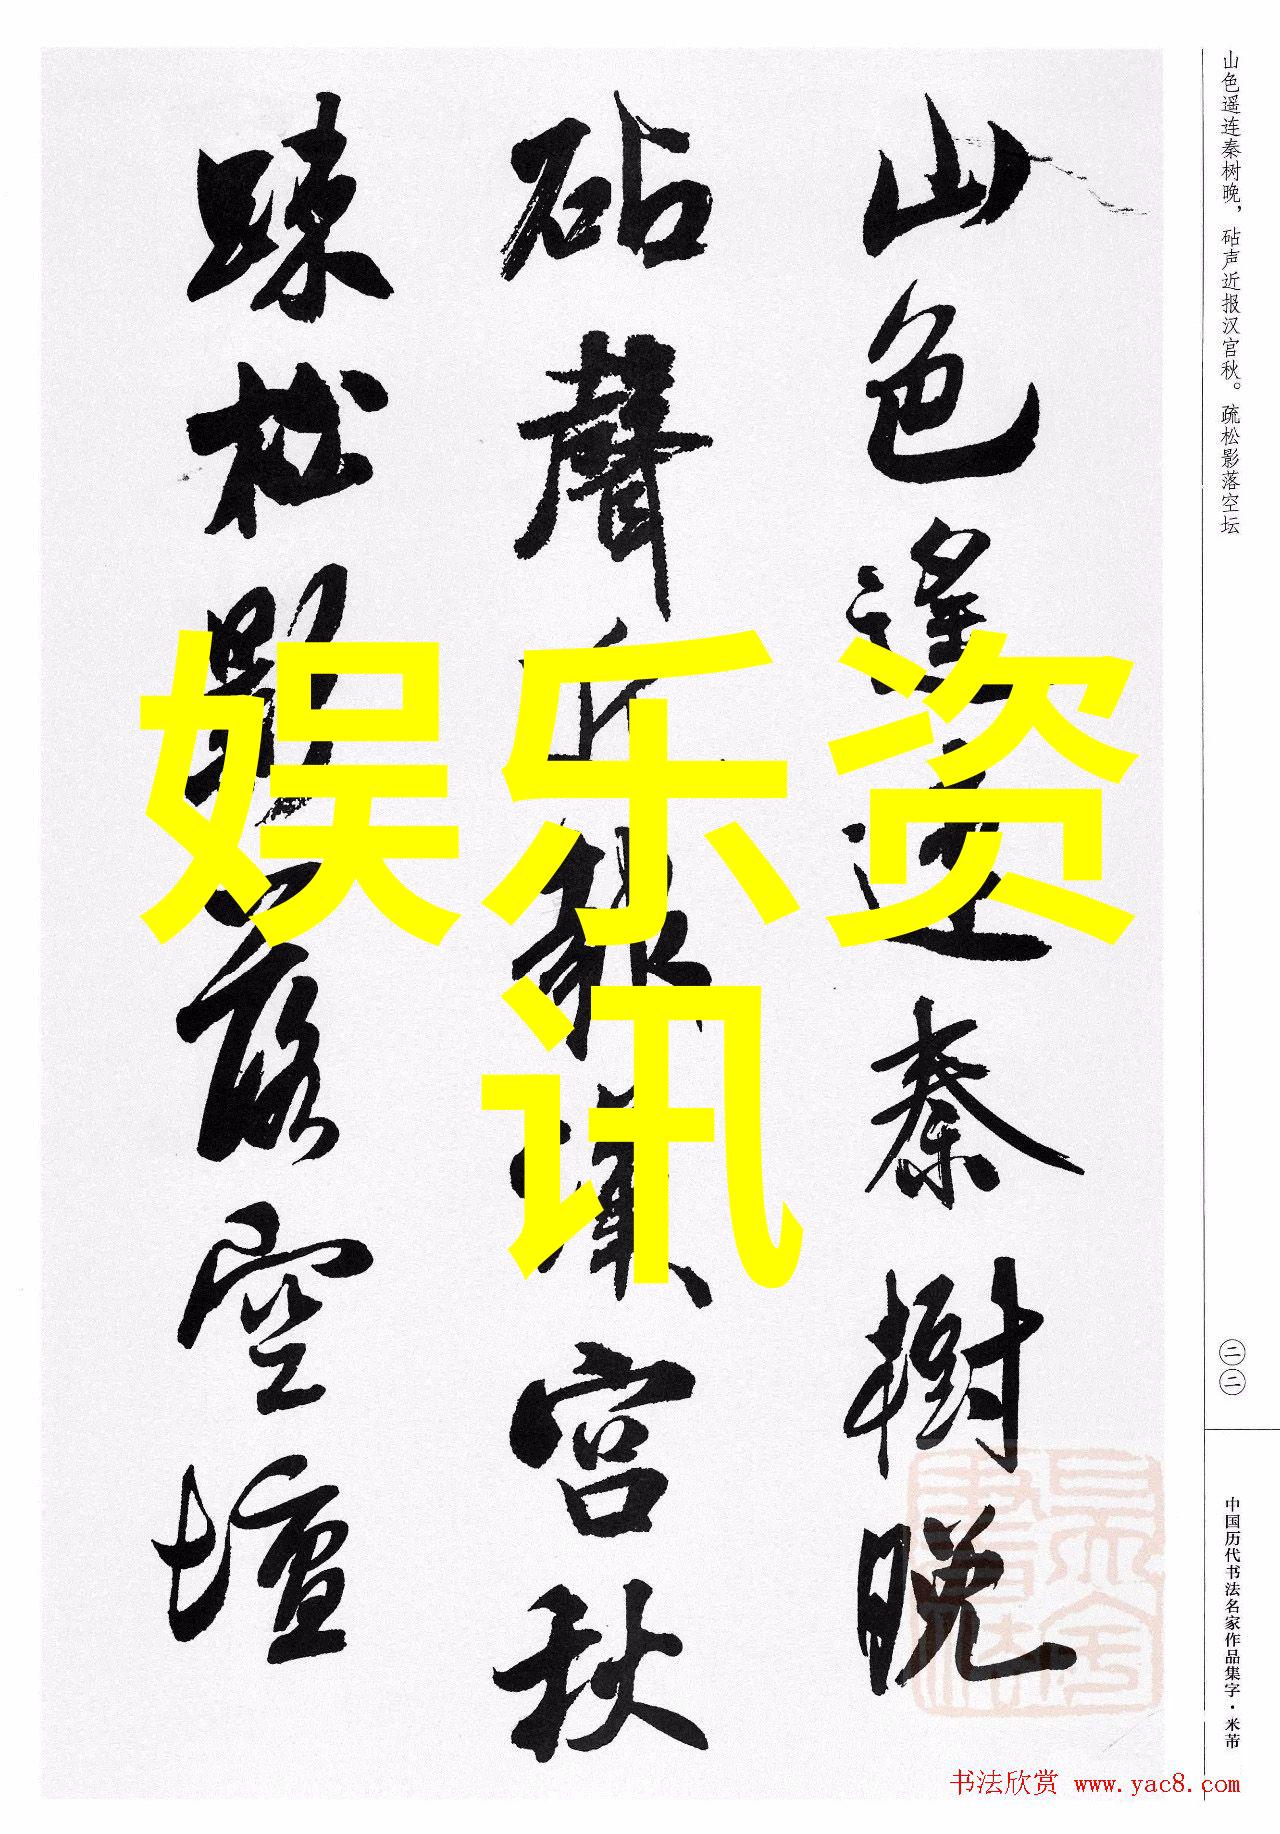 山色遥连秦树晚，砧声近报汉宫秋。疏松影落空坛
二二
中国历代书法名家作品集字·米芾
山色遥连秦樹晚
砧聲近報漢宮秋
疎松影落空壇
娱乐资
讯
书法欣赏 www.yac8.com